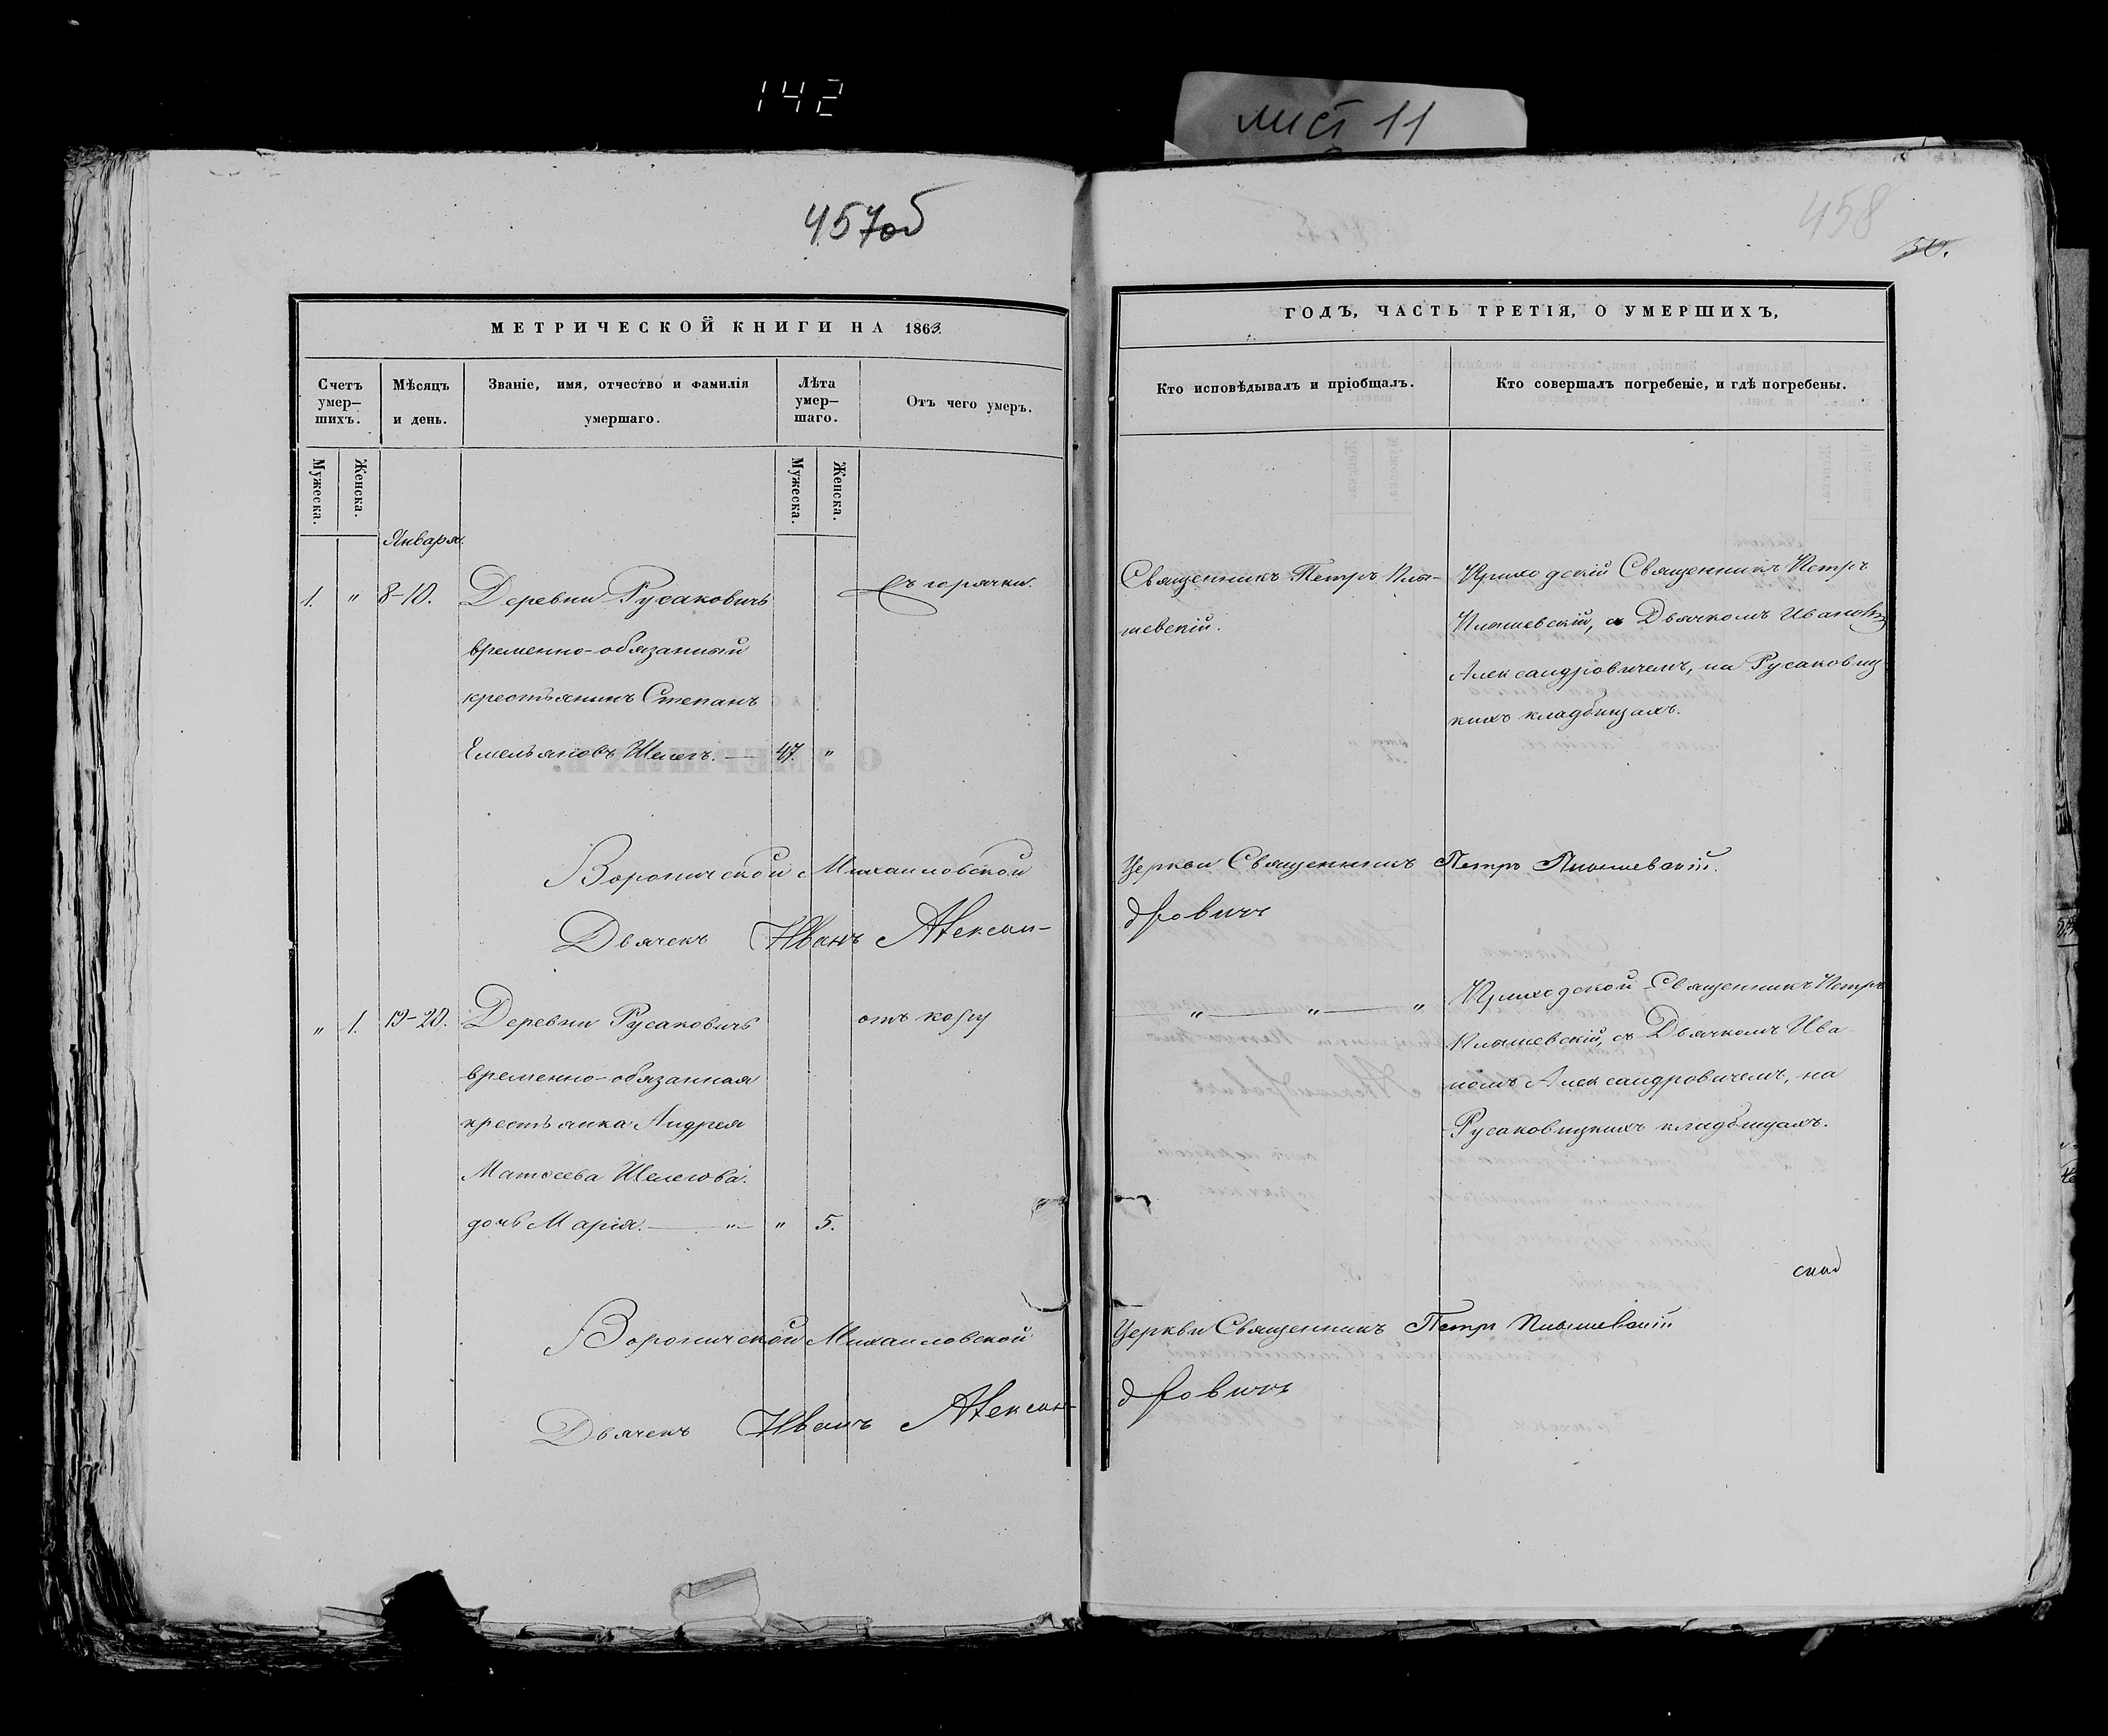 142
лист 11
457об
458
30.
МЕТРИЧЕСКОЙ КНИГИ НА 1863.
ГОДЪ, ЧАСТЬ ТРЕТІЯ, О УМЕРШИХЪ,
Счетъ умер–шихъ.
Мѣсяцъ и день.
Званіе, имя, отчество и фамилія умершаго.
Лѣта умер–шаго.
Отъ чего умеръ.
Кто исповѣдывалъ и пріобщалъ.
Кто совершалъ погребеніе, и гдѣ погребены.
Мужеска.
Женска.
Мужеска.
Женска.
Января.
1. " 8-10. Деревни Русаковичъ
временно-обязанный
крестьянинъ Степанъ
Емельяновъ Шелегъ. — 47. "
Съ горячки.
Священникъ Петръ
шевскій.
Приходскій Священникъ Петръ
съ Дьячкомъ Иваномъ
Александровичемъ, на Русаковиц
кихъ кладбищахъ.
Вороничской Михаиловской Церкви Священникъ Петръ
Дьячекъ Иванъ Александровичъ
" 1. 19-20. Деревни Русаковичъ
временно-обязанная
крестьянка Андрея
Матѳеева Шелегова
дочь Марія. — " — " 5.
отъ кору
" — " — "
Приходской Священникъ Петръ
съ Дьячкомъ Ива
номъ Александровичемъ, на
Русаковицкихъ кладбищахъ.
Вороничской Михаиловской Церкви Священникъ Петръ
Дьячекъ Иванъ Александровичъ